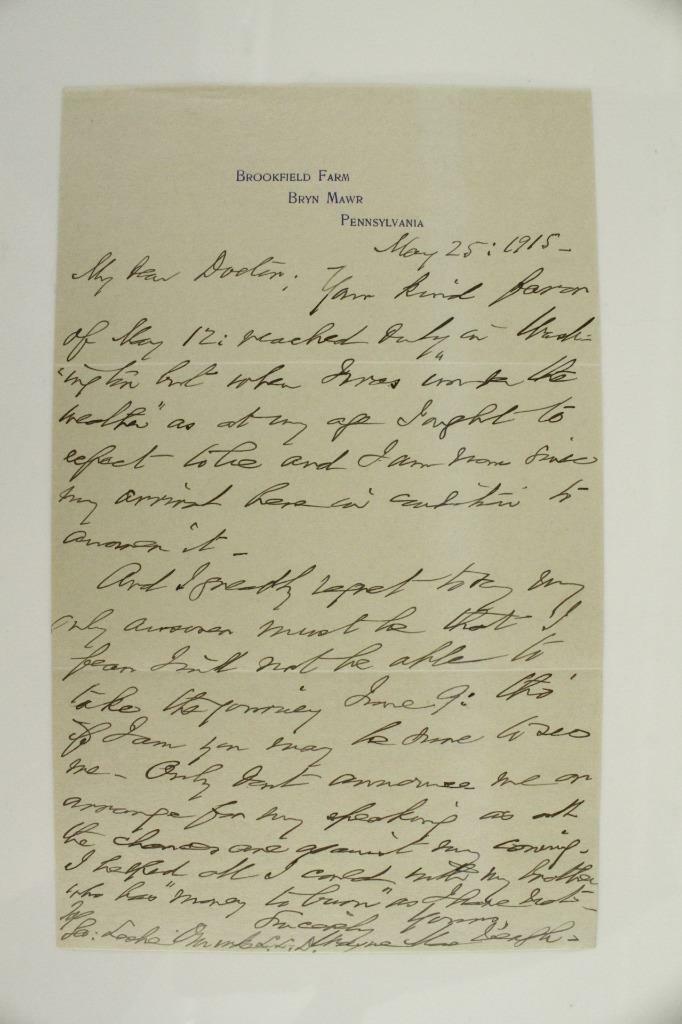 BROOKFIELD FARM
BRYN MAWR
PENNSYLVANIA
May 25: 1915 -
My dear Doctor: Your kind favor
of May 12: reached duly in Wash-
ington but when I was "under the
weather" as at my age I ought to
expect to be and I am now since
my arrival here in condition to
answer it -
And I greatly regret to say my
only answer must be that I
fear I'll not be able to
take the journey June 9: tho'
if I am you may be sure to see
me - Only don't announce me or
arrange for my speaking as all
the chances are against my coming.
I helped all I could with my brother
who has "money to burn" as I have not -
Sincerely Yours,
Geo: Leslie L.L.D. Wayne MacVeagh -